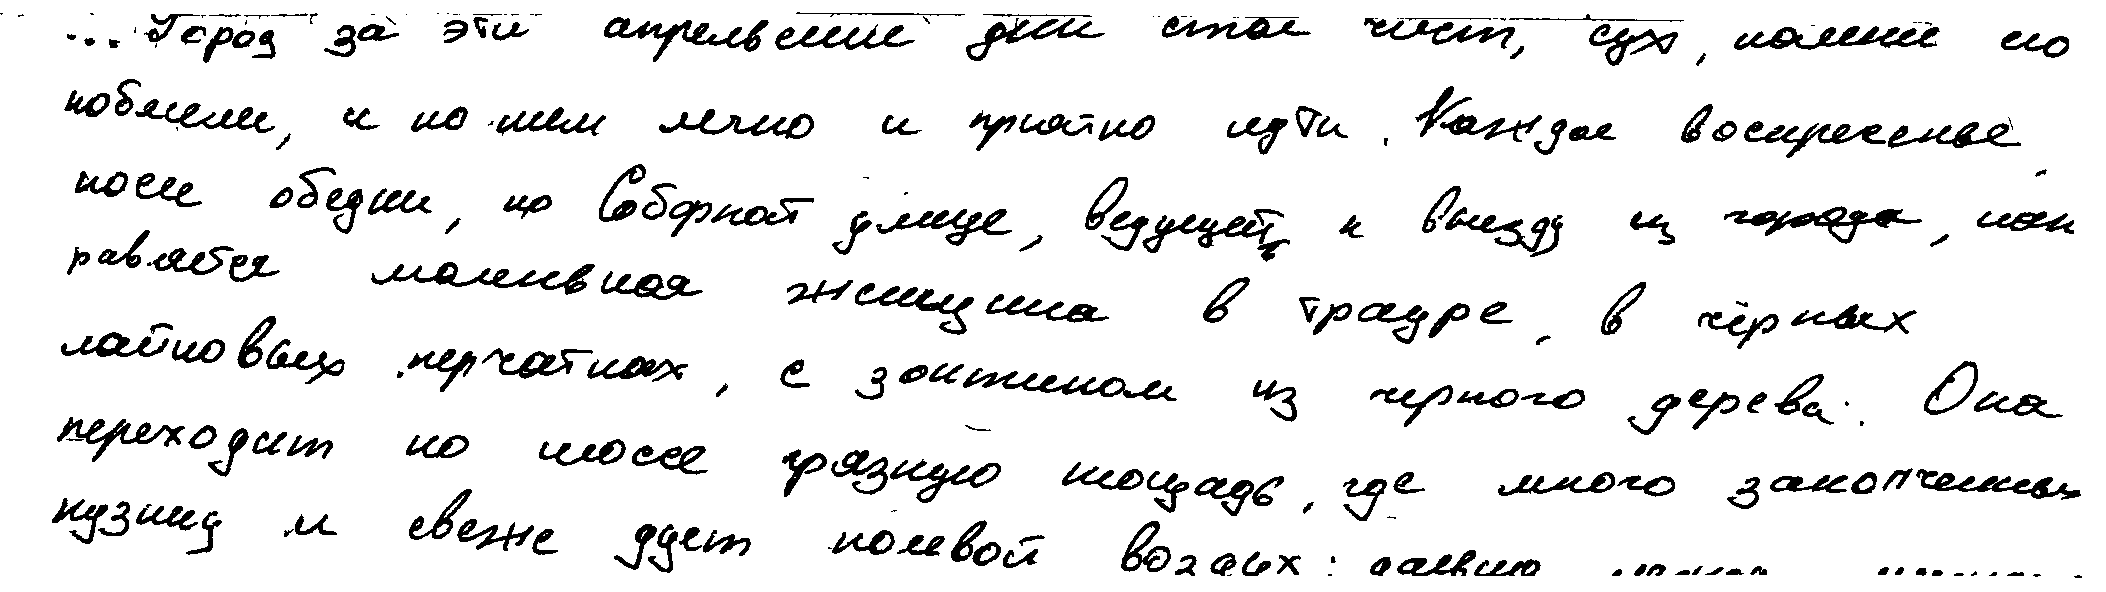 ...Город за эти апрельские дни стал чист, сух, камни его
побелели, и по ним легко и приятно идти. Каждое воскресенье,
после обедни, по Соборной улице, ведущей к выезду из города, нап
равляется маленькая женщина в трауре, в чёрных
лайковых перчатках, с зонтиком из черного дерева. Она
переходит по шоссе грязную площадь, где много закопченных
кузниц и свеже дует полевой воздух; дальше